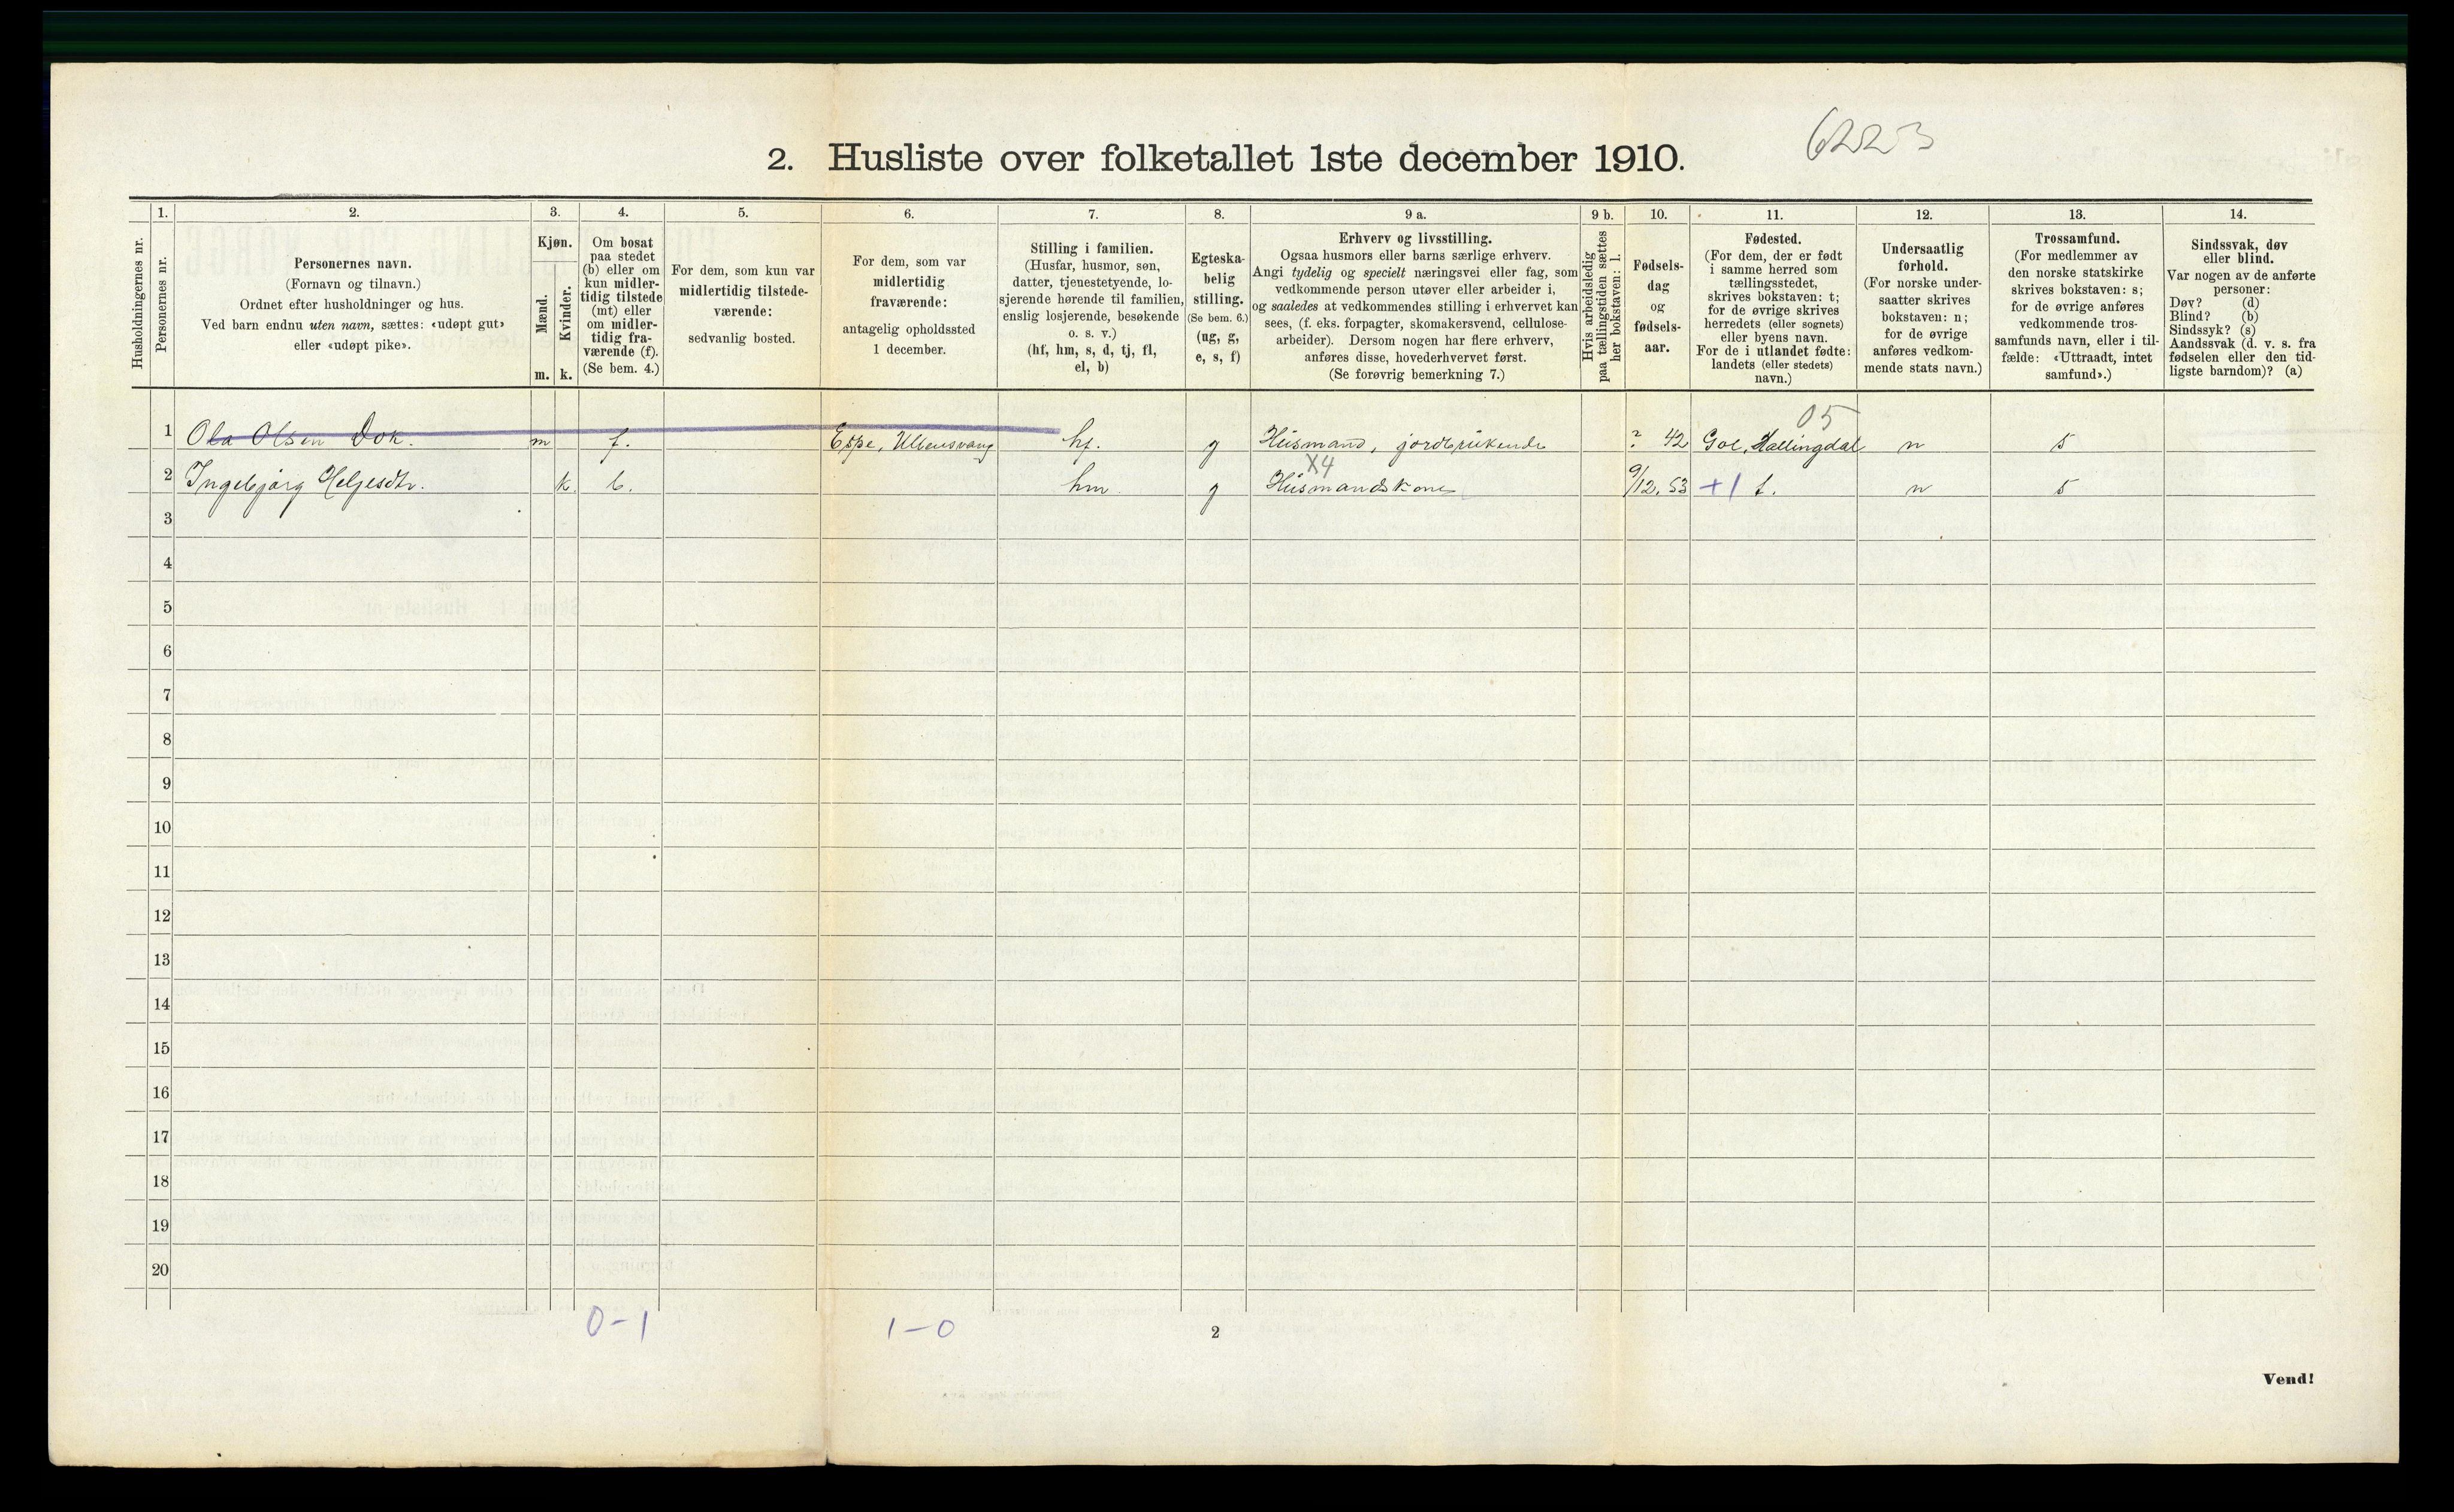 6223
2. Husliste over folketallet 1ste december 1910.
1. 2. 3. 4. 5. 6. 7. 8. 9 a. 9 b. 10. 11. 12. 13. 14.
Husholdningernes nr.
Personernes nr.
Personernes navn.
(Fornavn og tilnavn.)
Ordnet efter husholdninger og hus.
Ved barn endnu uten navn, sættes: «udøpt gut»
eller «udøpt pike».
Kjøn.
Mænd.
Kvinder.
m. k.
Om bosat
paa stedet
(b) eller om
kun midler-
tidig tilstede
(mt) eller
om midler-
tidig fra-
værende (f).
(Se bem. 4.)
For dem, som kun var
midlertidig tilstede-
værende:
sedvanlig bosted.
For dem, som var
midlertidig
fraværende:
antagelig opholdssted
1 december.
Stilling i familien.
(Husfar, husmor, søn,
datter, tjenestetyende, lo-
sjerende hørende til familien,
enslig losjerende, besøkende
o. s. v.)
(hf, hm, s, d, tj, fl,
el, b)
Egteska-
belig
stilling.
(Se bem. 6.)
(ug, g,
e, s, f)
Erhverv og livsstilling.
Ogsaa husmors eller barns særlige erhverv.
Angi tydelig og specielt næringsvei eller fag, som
vedkommende person utøver eller arbeider i,
og saaledes at vedkommendes stilling i erhvervet kan
sees, (f. eks. forpagter, skomakersvend, cellulose-
arbeider). Dersom nogen har flere erhverv,
anføres disse, hovederhvervet først.
(Se forøvrig bemerkning 7.)
Hvis arbeidsledig
paa tællingstiden sættes
her bokstaven: l.
Fødsels-
dag
og
fødsels-
aar.
Fødested.
(For dem, der er født
i samme herred som
tællingsstedet,
skrives bokstaven: t;
for de øvrige skrives
herredets (eller sognets)
eller byens navn.
For de i utlandet fødte:
landets (eller stedets)
navn.)
Undersaatlig
forhold.
(For norske under-
saatter skrives
bokstaven: n;
for de øvrige
anføres vedkom-
mende stats navn.)
Trossamfund.
(For medlemmer av
den norske statskirke
skrives bokstaven: s;
for de øvrige anføres
vedkommende tros-
samfunds navn, eller i til-
fælde: «Uttraadt, intet
samfund».)
Sindssvak, døv
eller blind.
Var nogen av de anførte
personer:
Døv? (d)
Blind? (b)
Sindssyk? (s)
Aandssvak (d. v. s. fra
fødselen eller den tid-
ligste barndom)? (a)
05
1 Ola Olsen Dok. m f. Espe, Ullensvang hf. g Husmand, jordbrukende ? 42 Gol, Hallingdal n s
X4
2 Ingebjørg Helgesdtr. k. b. hm. g Husmandskone 9/12. 53 +1 t. n s
3
4
5
6
7
8
9
10
11
12
13
14
15
16
17
18
19
20
0-1 1-0
2
Vend!